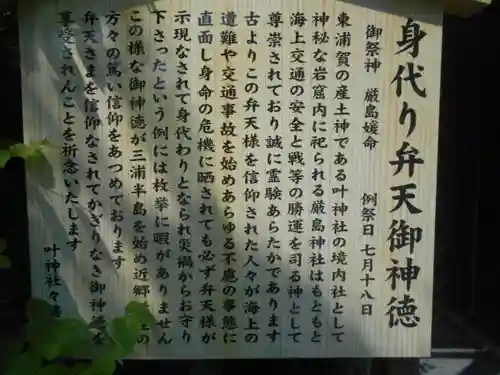 身代り弁天御神徳
御祭神　厳島媛命　例祭日　七月十八日
東浦賀の産土神である叶神社の境内社として
神秘な岩窟内に祀られる厳島神社はもともと
海上交通の安全と戦等の勝運を司る神として
尊崇されており誠に霊験あらたかであります
古よりこの弁天様を信仰された人々が海上の
遭難や交通事故を始めあらゆる不慮の事態に
直面し身命の危機に晒されても必ず弁天様が
示現なされて身代わりとなられ災禍からお守り
下さったという例には枚挙に暇がありません
この様な御神徳が三浦半島を始め近郷の
方々の篤い信仰をあつめております
弁天さまを信仰なされてかぎりなき御神徳を
享受されんことを祈念いたします
叶神社々